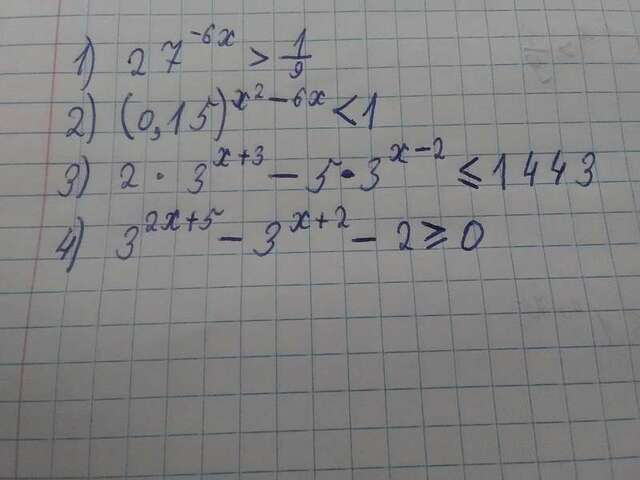 1) 27^{-6x} > \frac{1}{9}
2) (0,15)^{x^2-6x} < 1
3) 2 · 3^{x+3} - 5 · 3^{x-2} ≤ 1443
4) 3^{2x+5} - 3^{x+2} - 2 ≥ 0